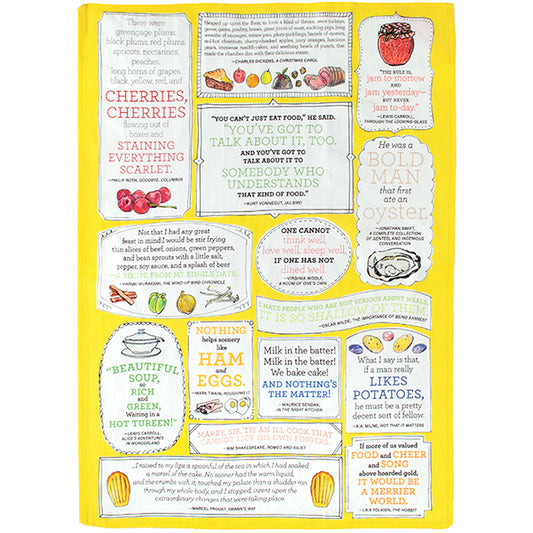 There were
greengage plums,
black plums, red plums,
apricots, nectarines,
peaches,
long horns of grapes,
black, yellow, red, and
CHERRIES,
CHERRIES
flowing out of
boxes and
STAINING
EVERYTHING
SCARLET.
—PHILIP ROTH, GOODBYE, COLUMBUS
Heaped up upon the floor, to form a kind of throne, were turkeys,
geese, game, poultry, brawn, great joints of meat, sucking-pigs, long
wreaths of sausages, mince-pies, plum-puddings, barrels of oysters,
red-hot chestnuts, cherry-cheeked apples, juicy oranges, luscious
pears, immense twelfth-cakes, and seething bowls of punch, that
made the chamber dim with their delicious steam.
—CHARLES DICKENS, A CHRISTMAS CAROL
"THE RULE IS,
jam to-morrow
AND
jam yesterday—
BUT NEVER
jam to-day."
—LEWIS CARROLL,
THROUGH THE LOOKING GLASS
"YOU CAN'T JUST EAT FOOD," HE SAID.
"YOU'VE GOT TO
TALK ABOUT IT, TOO.
AND YOU'VE GOT TO
TALK ABOUT IT TO
SOMEBODY WHO
UNDERSTANDS
THAT KIND OF FOOD."
—KURT VONNEGUT, JAILBIRD
He was a
BOLD
MAN
that first
ate an
oyster.
—JONATHAN SWIFT,
A COMPLETE COLLECTION
OF GENTEEL AND INGENIOUS
CONVERSATION
Not that I had any great
feast in mind. I would be stir frying
thin slices of beef, onions, green peppers,
and bean sprouts with a little salt,
pepper, soy sauce, and a splash of beer
—A RECIPE FROM MY SINGLE DAYS.
—HARUKI MURAKAMI, THE WIND-UP BIRD CHRONICLE
ONE CANNOT
think well,
love well, sleep well,
IF ONE HAS NOT
dined well.
—VIRGINIA WOOLF,
A ROOM OF ONE'S OWN
I HATE PEOPLE WHO ARE NOT SERIOUS ABOUT MEALS.
IT IS SO SHALLOW OF THEM.
—OSCAR WILDE, THE IMPORTANCE OF BEING EARNEST
"BEAUTIFUL
SOUP,
so
RICH
and
GREEN,
Waiting in a
HOT TUREEN!"
—LEWIS CARROLL,
ALICE'S ADVENTURES
IN WONDERLAND
NOTHING
helps scenery
like
HAM
and
EGGS.
—MARK TWAIN, ROUGHING IT
Milk in the batter!
Milk in the batter!
We bake cake!
AND NOTHING'S
THE MATTER!
—MAURICE SENDAK,
IN THE NIGHT KITCHEN
What I say is that,
if a man really
LIKES
POTATOES,
he must be a pretty
decent sort of fellow.
—A.A. MILNE, NOT THAT IT MATTERS
MARRY, SIR, 'TIS AN ILL COOK THAT
CANNOT LICK HIS OWN FINGERS.
—WM SHAKESPEARE, ROMEO AND JULIET
...I raised to my lips a spoonful of the tea in which I had soaked
a morsel of the cake. No sooner had the warm liquid,
and the crumbs with it, touched my palate than a shudder ran
through my whole body, and I stopped, intent upon the
extraordinary changes that were taking place.
—MARCEL PROUST, SWANN'S WAY
If more of us valued
FOOD and CHEER
and SONG
above hoarded gold,
IT WOULD BE
A MERRIER
WORLD.
—J.R.R. TOLKIEN, THE HOBBIT